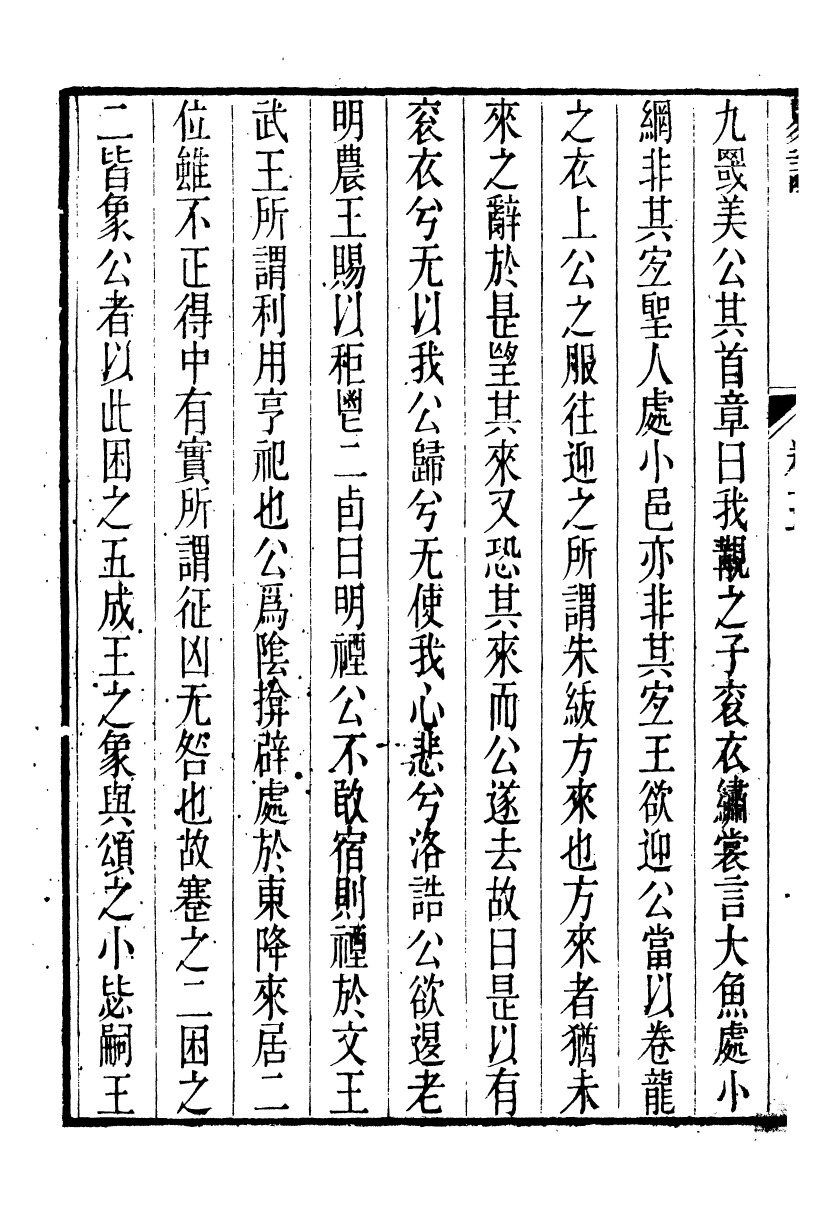 九罭美公其首章曰我覯之子袞衣繡裳言大魚處小
網非其宐聖人處小邑亦非其宐王欲迎公當以卷龍
之衣上公之服往迎之所謂朱紱方來也方來者猶未
來之辭於是望其來又恐其來而公遂去故曰是以有
袞衣兮无以我公歸兮无使我心悲兮洛誥公欲退老
明農王賜以秬鬯二卣曰明禋公不敢宿則禋於文王
武王所謂利用亨祀也公爲陰揜辟處於東降來居二
位雖不正得中有實所謂征凶无咎也故蹇之二困之
二皆象公者以此困之五成王之象與頌之小毖嗣王